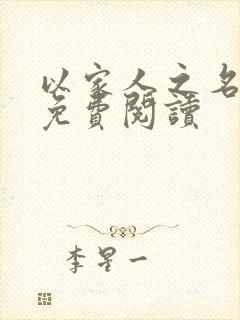 以家人之名
免費閱讀
李星一